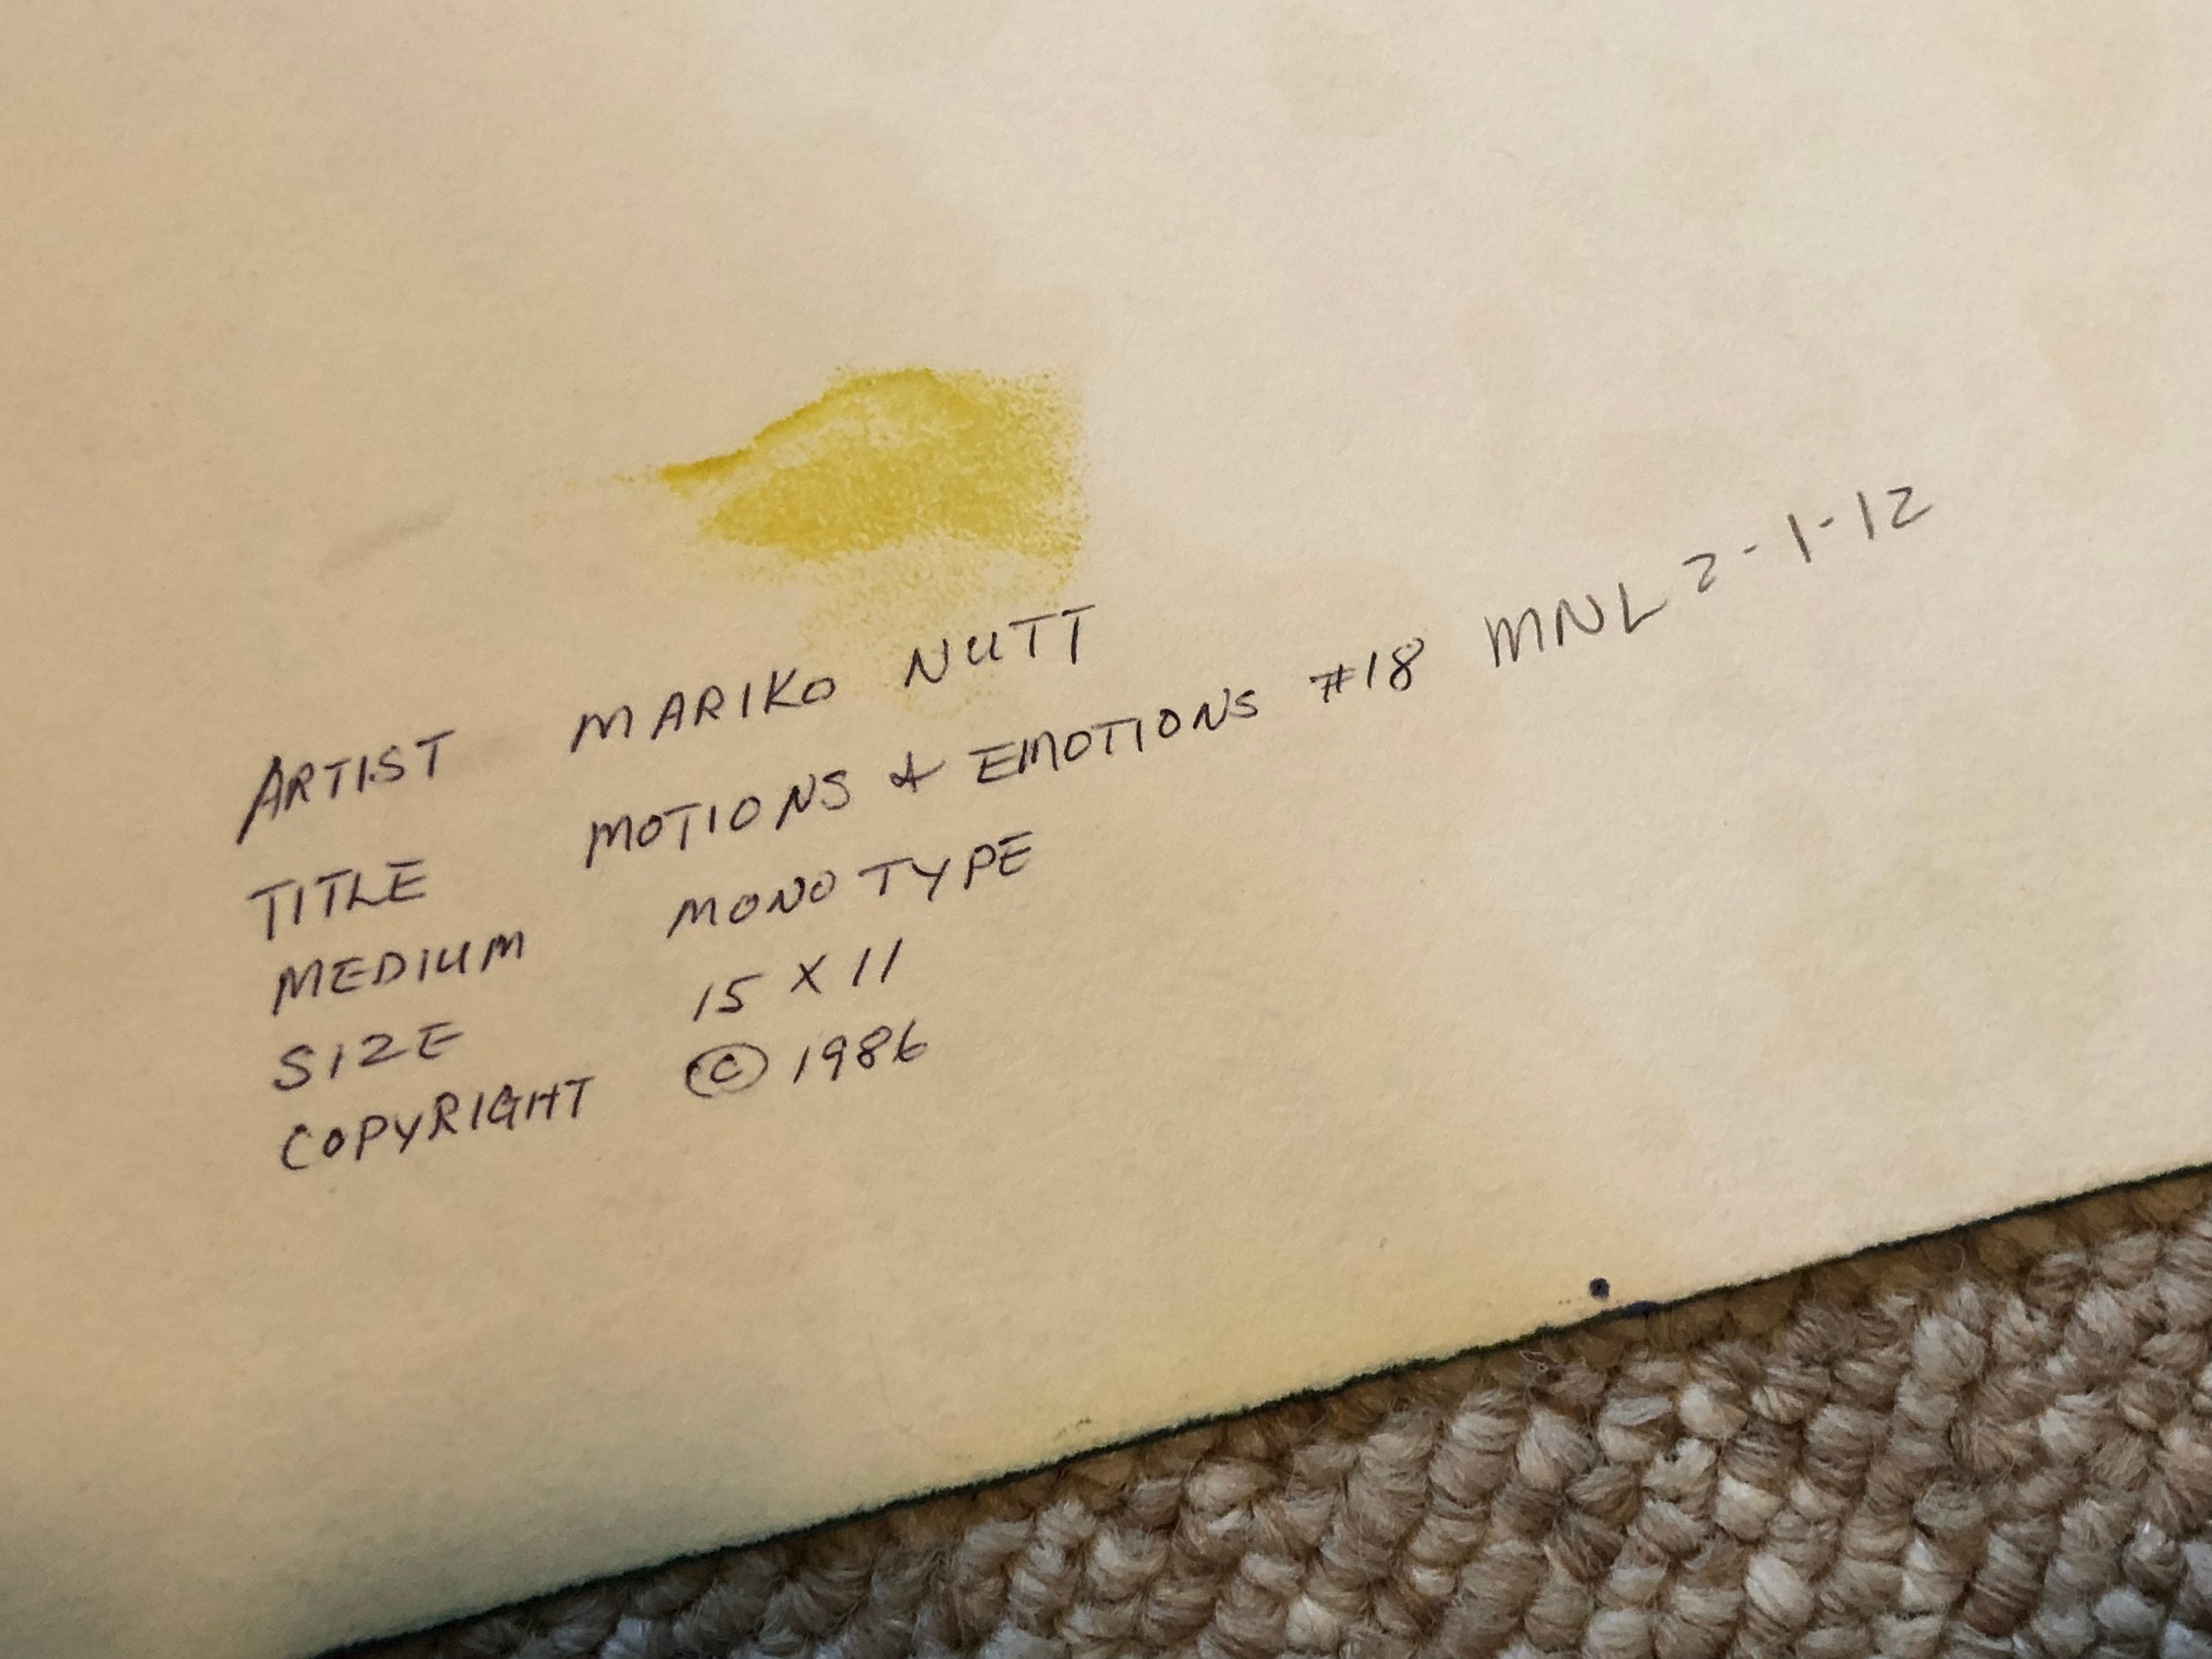 ARTIST MARIKO NUTT
TITLE MOTIONS & EMOTIONS #18 MNL 2-1-12
MEDIUM MONOTYPE
SIZE 15 X 11
COPYRIGHT © 1986